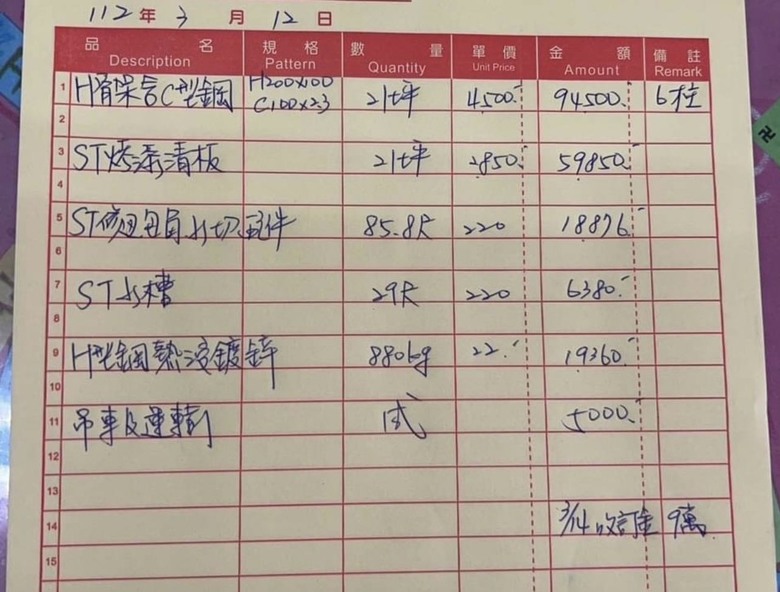 112 年 3 月 12 日
品 名 規 格 數 量 單 價 金 額 備 註
Description Pattern Quantity Unit Price Amount Remark
1 H骨架含C型鋼 H200x100 21坪 4500 94500 6柱
C100x2.3
2
3 ST烤漆清板 21坪 2850 59850
4
5 ST 包角水切配件 85.8尺 220 18876
6
7 ST水槽 29尺 220 6380
8
9 H型鋼熱浸鍍鋅 880kg 22 19360
10
11 吊車及運輸 1式 5000
12
13
14 3/14收訂金 9萬
15
卍